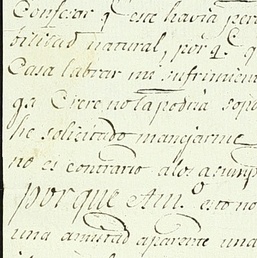 Confesar q.e este havia per
bilidad natural, por q.e q
Casa labrar mi sufrimien
no la podria sopo
he solicitado manejarme
no es contrario a los asump
porque Am.o esto no
una amistad aparente una